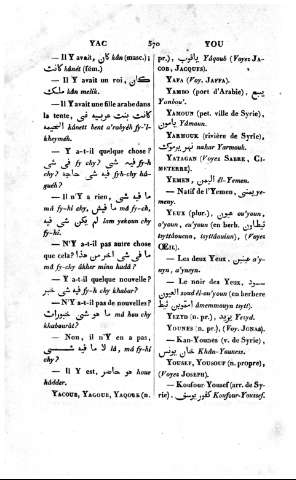 YAC 570 YOU
— Il Y avait, كان kân (masc.);
كانت kânét (fém.)
— Il Y avait un roi, كان
ملك kân melik.
— Il Y avait une fille arabe dans
la tente, كانت بنت عربيه في
الخيمه kânett bent a'rabyéh fy-'l-
kheyméh.
— Y a-t-il quelque chose?
في شي fy chy? فيه شي fy-h
chy? فيه شي حاجه fyh-chy hâ-
guéh?
— Il n'Y a rien, ما فيه شي
mâ fy-hi chy, ما فيش mâ fy-ch,
لم يكون شي فيه lam yekoun chy
fy-hi.
— N'Y a-t-il pas autre chose
que cela? ما في شي اخر من هذا
mâ fy-chy âkher minn hadâ?
— Y a-t-il quelque nouvelle?
فيه شي خبر fy-hi chy khabar?
— N'Y a-t-il pas de nouvelles?
ما هو شي خبورات mâ hou chy
khabourât?
— Non, il n'Y en a pas,
لا ما فيه شي lâ, mâ fy-hi
chy?
— Il Y est, هو حاضر houe
hâdder.
YACOUB, YAGOUB, YAQOUB (n.
pr.), يعقوب Yâqoub (Voyez JA-
COB, JACQUES).
YAFA (Voy. JAFFA).
YAMBO (port d'Arabie), ينبع
Yanbou'.
YAMOUN (pet. ville de Syrie),
يامون Yâmoun.
YARMOUK (rivière de Syrie),
نهر يرموك nahar Yarmouk.
YATAGAN (Voyez SABRE, CI-
METERRE).
YEMEN, اليمن êl-Yemen.
— Natif de l'Yemen, يمني ye-
meny.
YEUX (plur.), عيون eu'youn,
a'youn, o'youn (en berb.
tsyttâoucnn, tsyttâouinn), (Voyez
ŒIL).
— Les deux Yeux, عينين a'y-
nyn, a'ynéyn.
— Le noir des Yeux,
العيون (en berbere
YEZYD (n. pr.), يزيد Yezyd.
YOUNES (n. pr.), (Voy. JONAS).
— Kan-Younès (v. de Syrie),
خان يونس Khân-Youness.
YOUSEF, YOUSOUF (n. propre),
(Voyez JOSEPH).
— Koufour Yousef (arr. de Sy-
rie), كفور يوسف Koufour-Youssef.